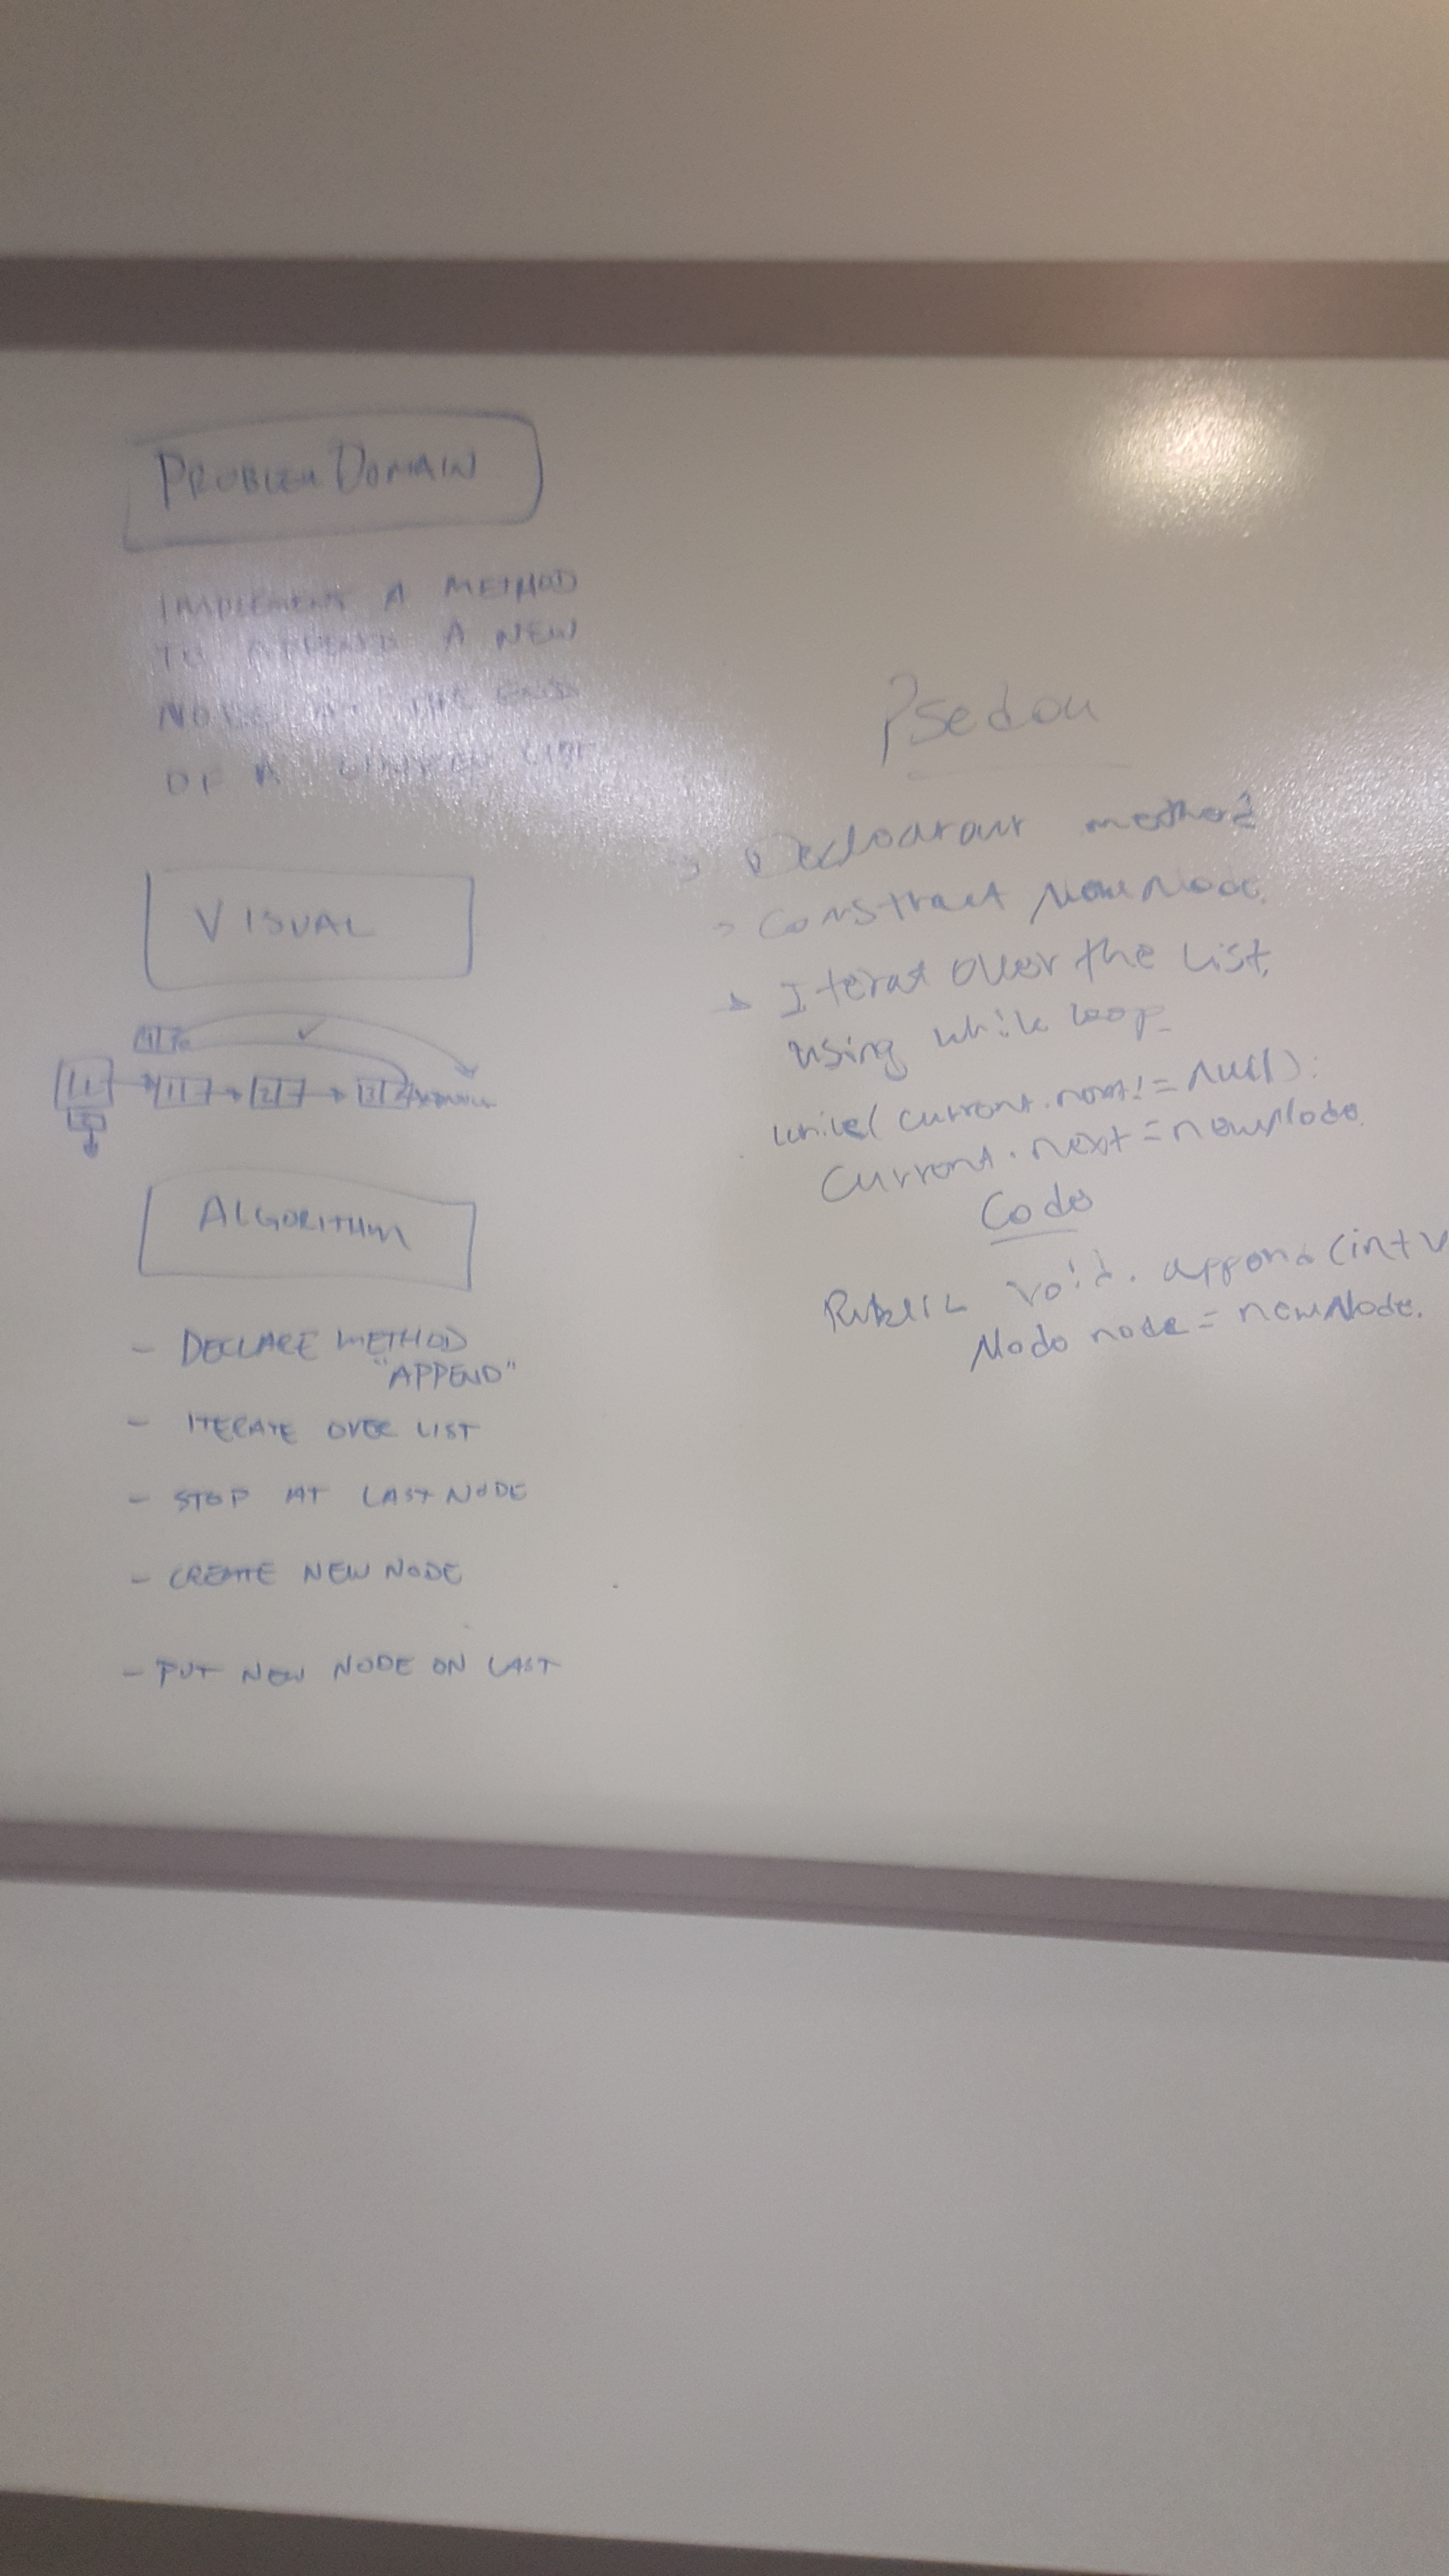 PROBLEM DOMAIN
IMPLEMENT A METHOD
TO APPEND A NEW
THE END
OF A LINKED LIST
VISUAL
ALGORITHM
- DECLARE METHOD
"APPEND"
- ITERATE OVER LIST
- STOP AT LAST NODE
- CREATE NEW NODE
- PUT NEW NODE ON LAST
Psedou
method
> Constract New Node.
> Iterat over the List,
using while loop
while( current.next! = Null):
Current.next = newNode.
Code
Public void. append (int v
Node node = newNode.